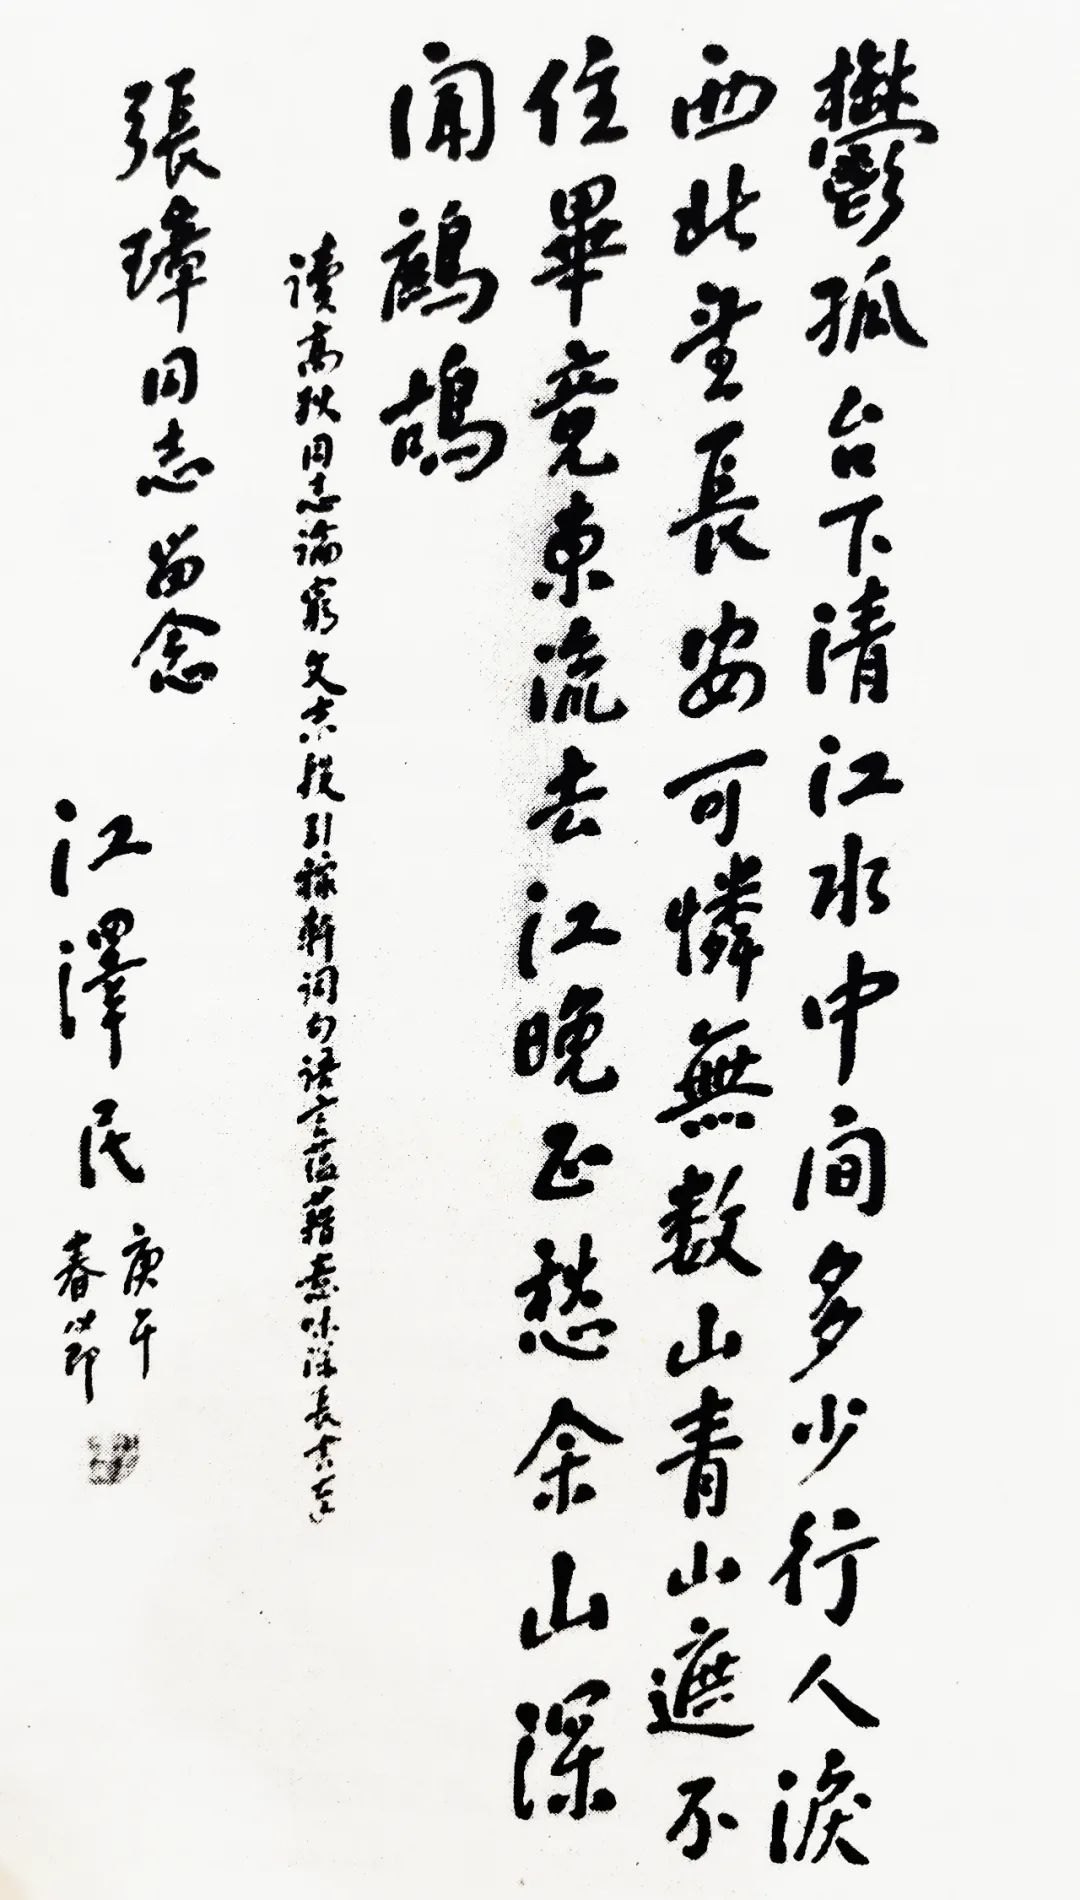 鬱孤台下清江水中间多少行人淚
西北望長安可憐無数山青山遮不
住畢竟東流去江晚正愁余山深
闻鷓鴣
读高狄同志論窮文末段引稼軒词句语言蕴藉意味深長
張璋同志留念
江澤民
庚午
春節